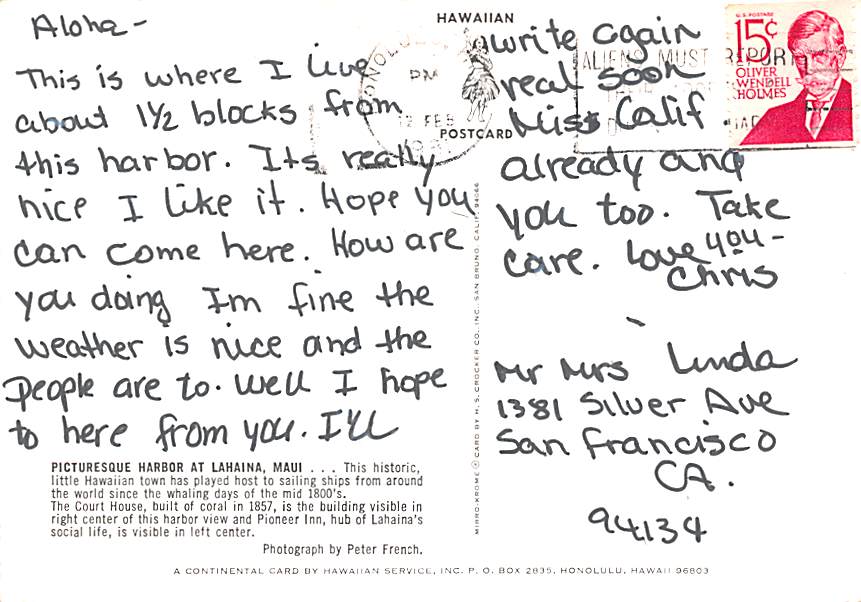 HAWAIIAN
POSTCARD
Aloha -
This is where I live
about 1½ blocks from
this harbor. Its really
nice I like it. Hope you
can come here. How are
you doing Im fine the
weather is nice and the
people are to. Well I hope
to here from you. I'll
write again
real soon
Miss Calif
already and
you too. Take
care. Love you -
Chris
U.S. POSTAGE
15¢
OLIVER
WENDELL
HOLMES
PM
12 FEB
ALIENS MUST REPORT
Mr Mrs Linda
1381 Silver Ave
San Francisco
CA.
94134
MIRRO-KROME ® CARD BY H. S. CROCKER CO., INC., SAN BRUNO, CALIF. 94066
PICTURESQUE HARBOR AT LAHAINA, MAUI . . . This historic,
little Hawaiian town has played host to sailing ships from around
the world since the whaling days of the mid 1800's.
The Court House, built of coral in 1857, is the building visible in
right center of this harbor view and Pioneer Inn, hub of Lahaina's
social life, is visible in left center.
Photograph by Peter French.
A CONTINENTAL CARD BY HAWAIIAN SERVICE, INC. P. O. BOX 2835, HONOLULU, HAWAII 96803